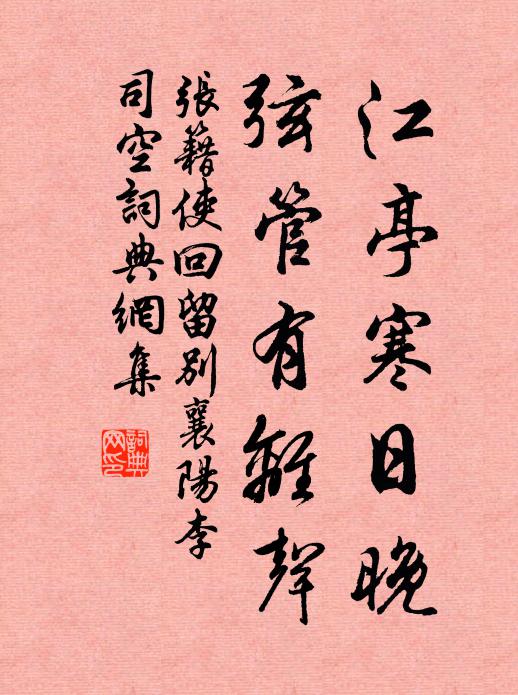 江亭寒日晚
弦管有離聲
張籍使回留別襄陽李
司空詞典網集
詞典网印